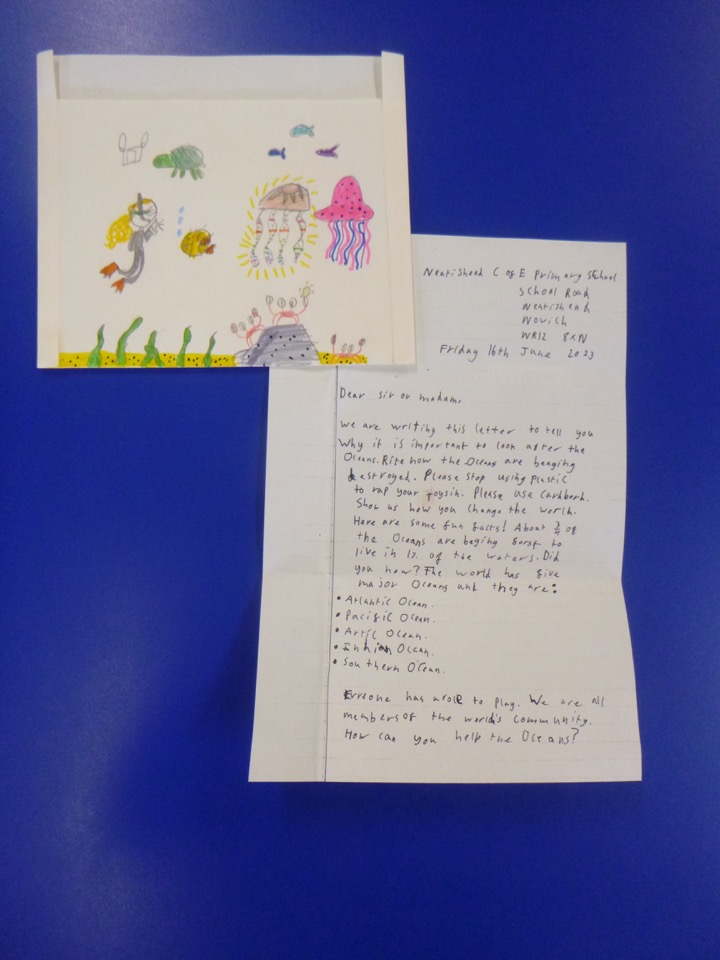 Neatishead C of E Primary School
School Road
Neatishead
Nowich
WR12 8XN
Friday 16th June 2023
Dear sir or madam,
we are writing this letter to tell you
Why it is important to look after the
Oceans. Rite now the Oceans are beaging
destroyed. Please stop using plastic
to rap your toysin. Please use cardbord.
Show us how you change the world.
Here are some fun facts! About 3/4 of
the Oceans are beging forst to
live in 1% of the waters. Did
you now? The world has five
major Oceans and they are:
• Atlantic Ocean.
• Pacific Ocean.
• Artic Ocean.
• Indian Ocean.
• Southern Ocean.
Evreone has a role to play. We are all
members of the world's community.
How can you help the Oceans?